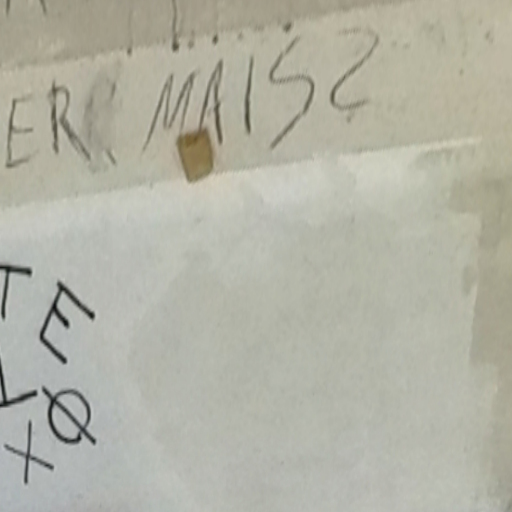 ER MAIS?
T E
L Q
X